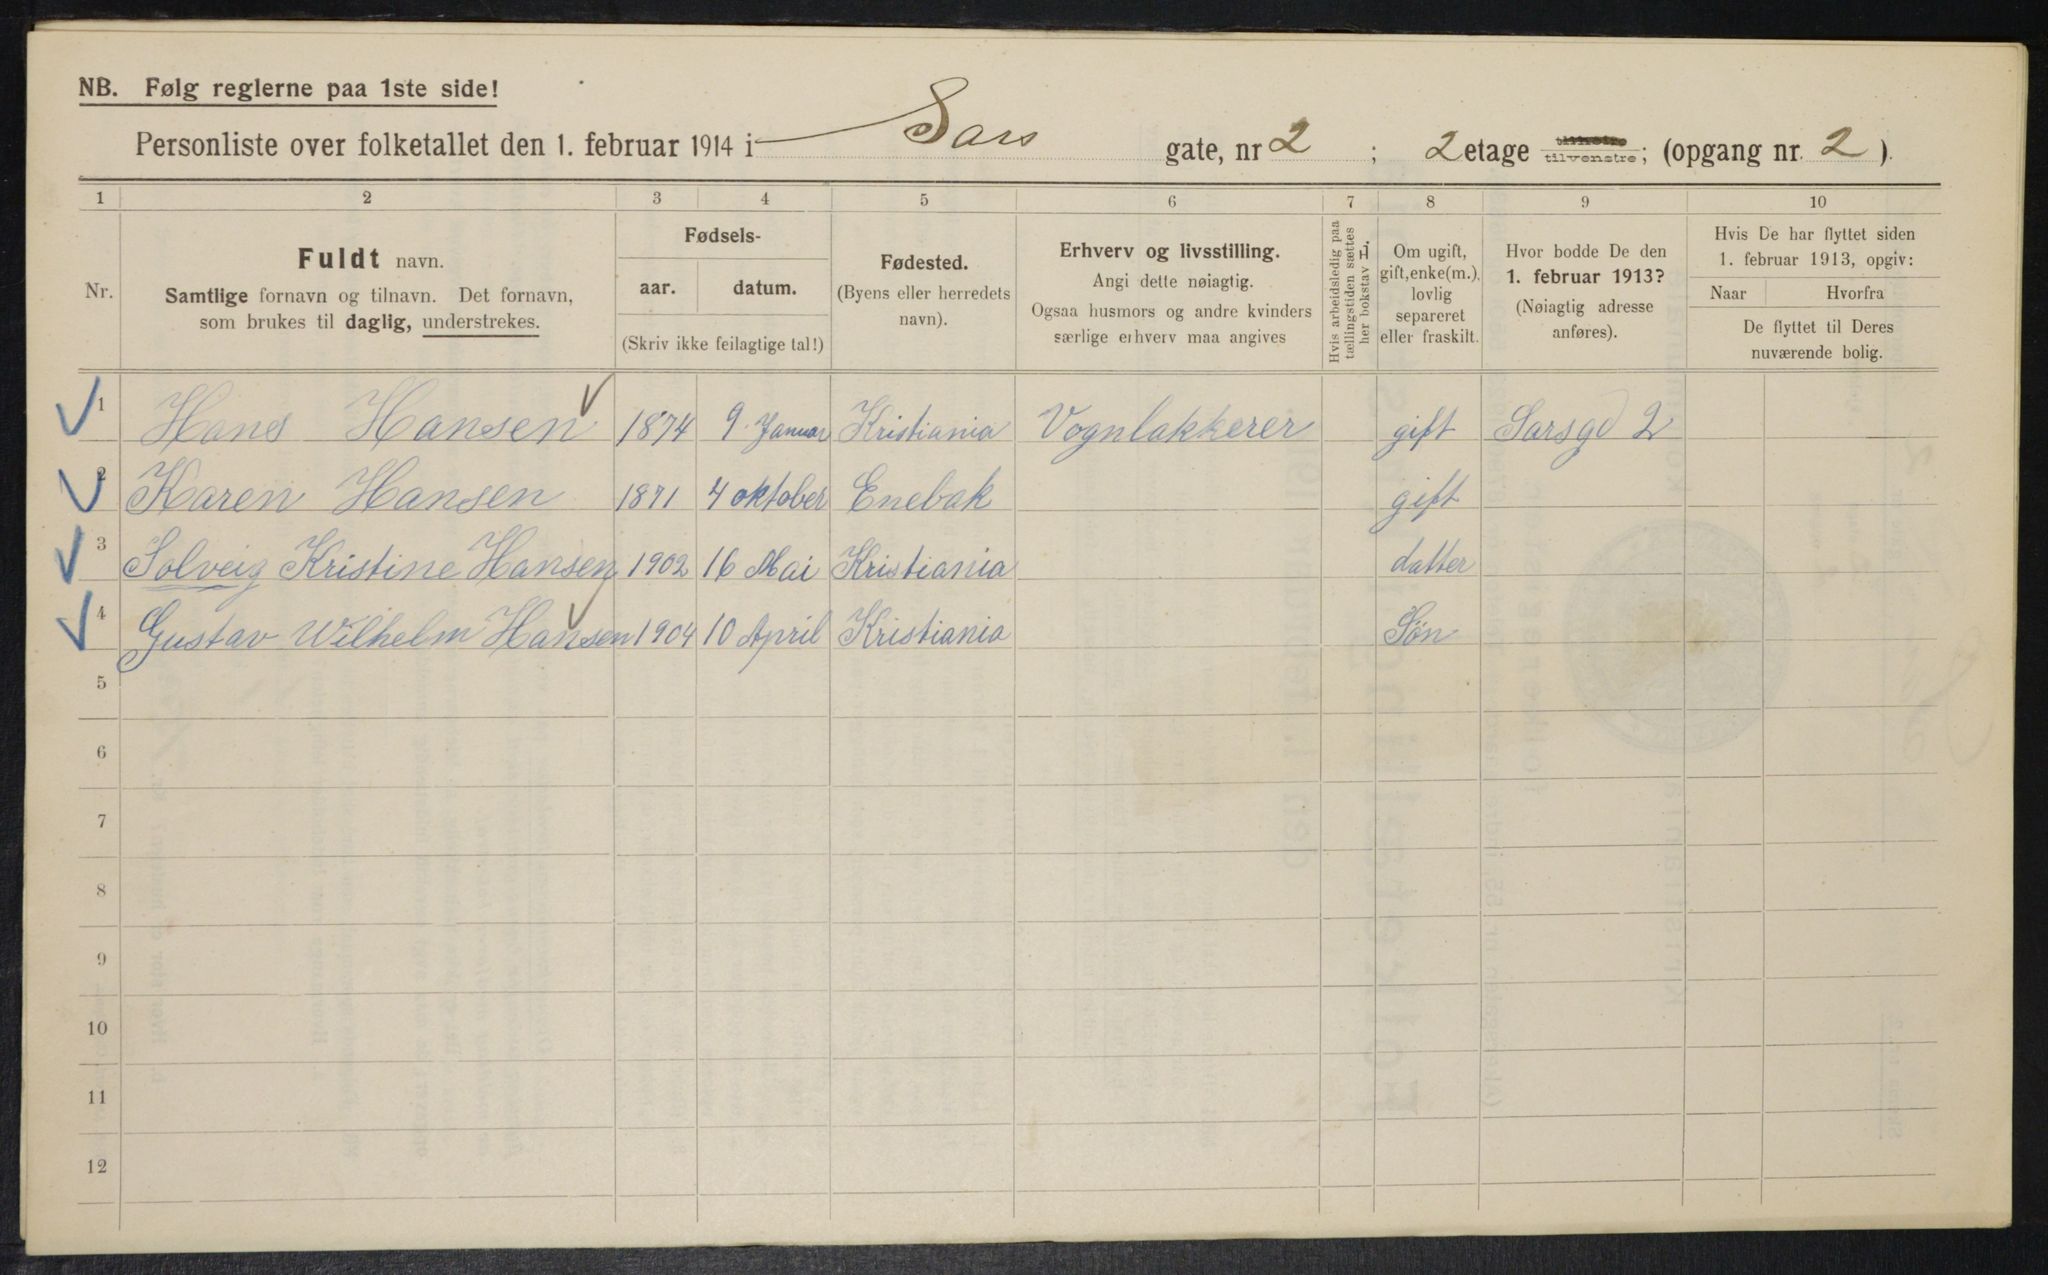 NB. Følg reglerne paa 1ste side!
Personliste over folketallet den 1. februar 1914 i Sars gate, nr 2 ; 2 etage tilvenstre; (opgang nr. 2 ).
1 2 3 4 5 6 7 8 9 10
Nr.
Fuldt navn.
Samtlige fornavn og tilnavn. Det fornavn,
som brukes til daglig, understrekes.
Fødsels-
aar. datum.
(Skriv ikke feilagtige tal!)
Fødested.
(Byens eller herredets
navn).
Erhverv og livsstilling.
Angi dette nøiagtig.
Ogsaa husmors og andre kvinders
særlige erhverv maa angives
Hvis arbeidsledig paa
tællingstiden sættes
her bokstav L.
Om ugift,
gift, enke(m.),
lovlig
separeret
eller fraskilt.
Hvor bodde De den
1. februar 1913?
(Nøiagtig adresse
anføres).
Hvis De har flyttet siden
1. februar 1913, opgiv:
Naar Hvorfra
De flyttet til Deres
nuværende bolig.
1 Hans Hansen 1874 9. Januar Kristiania Vognlakkerer gift Sarsgd 2
2 Karen Hansen 1871 4 oktober Enebak gift
3 Solveig Kristine Hansen 1902 16 Mai Kristiania datter
4 Gustav Wilhelm Hansen 1904 10 April Kristiania Søn
5
6
7
8
9
10
11
12